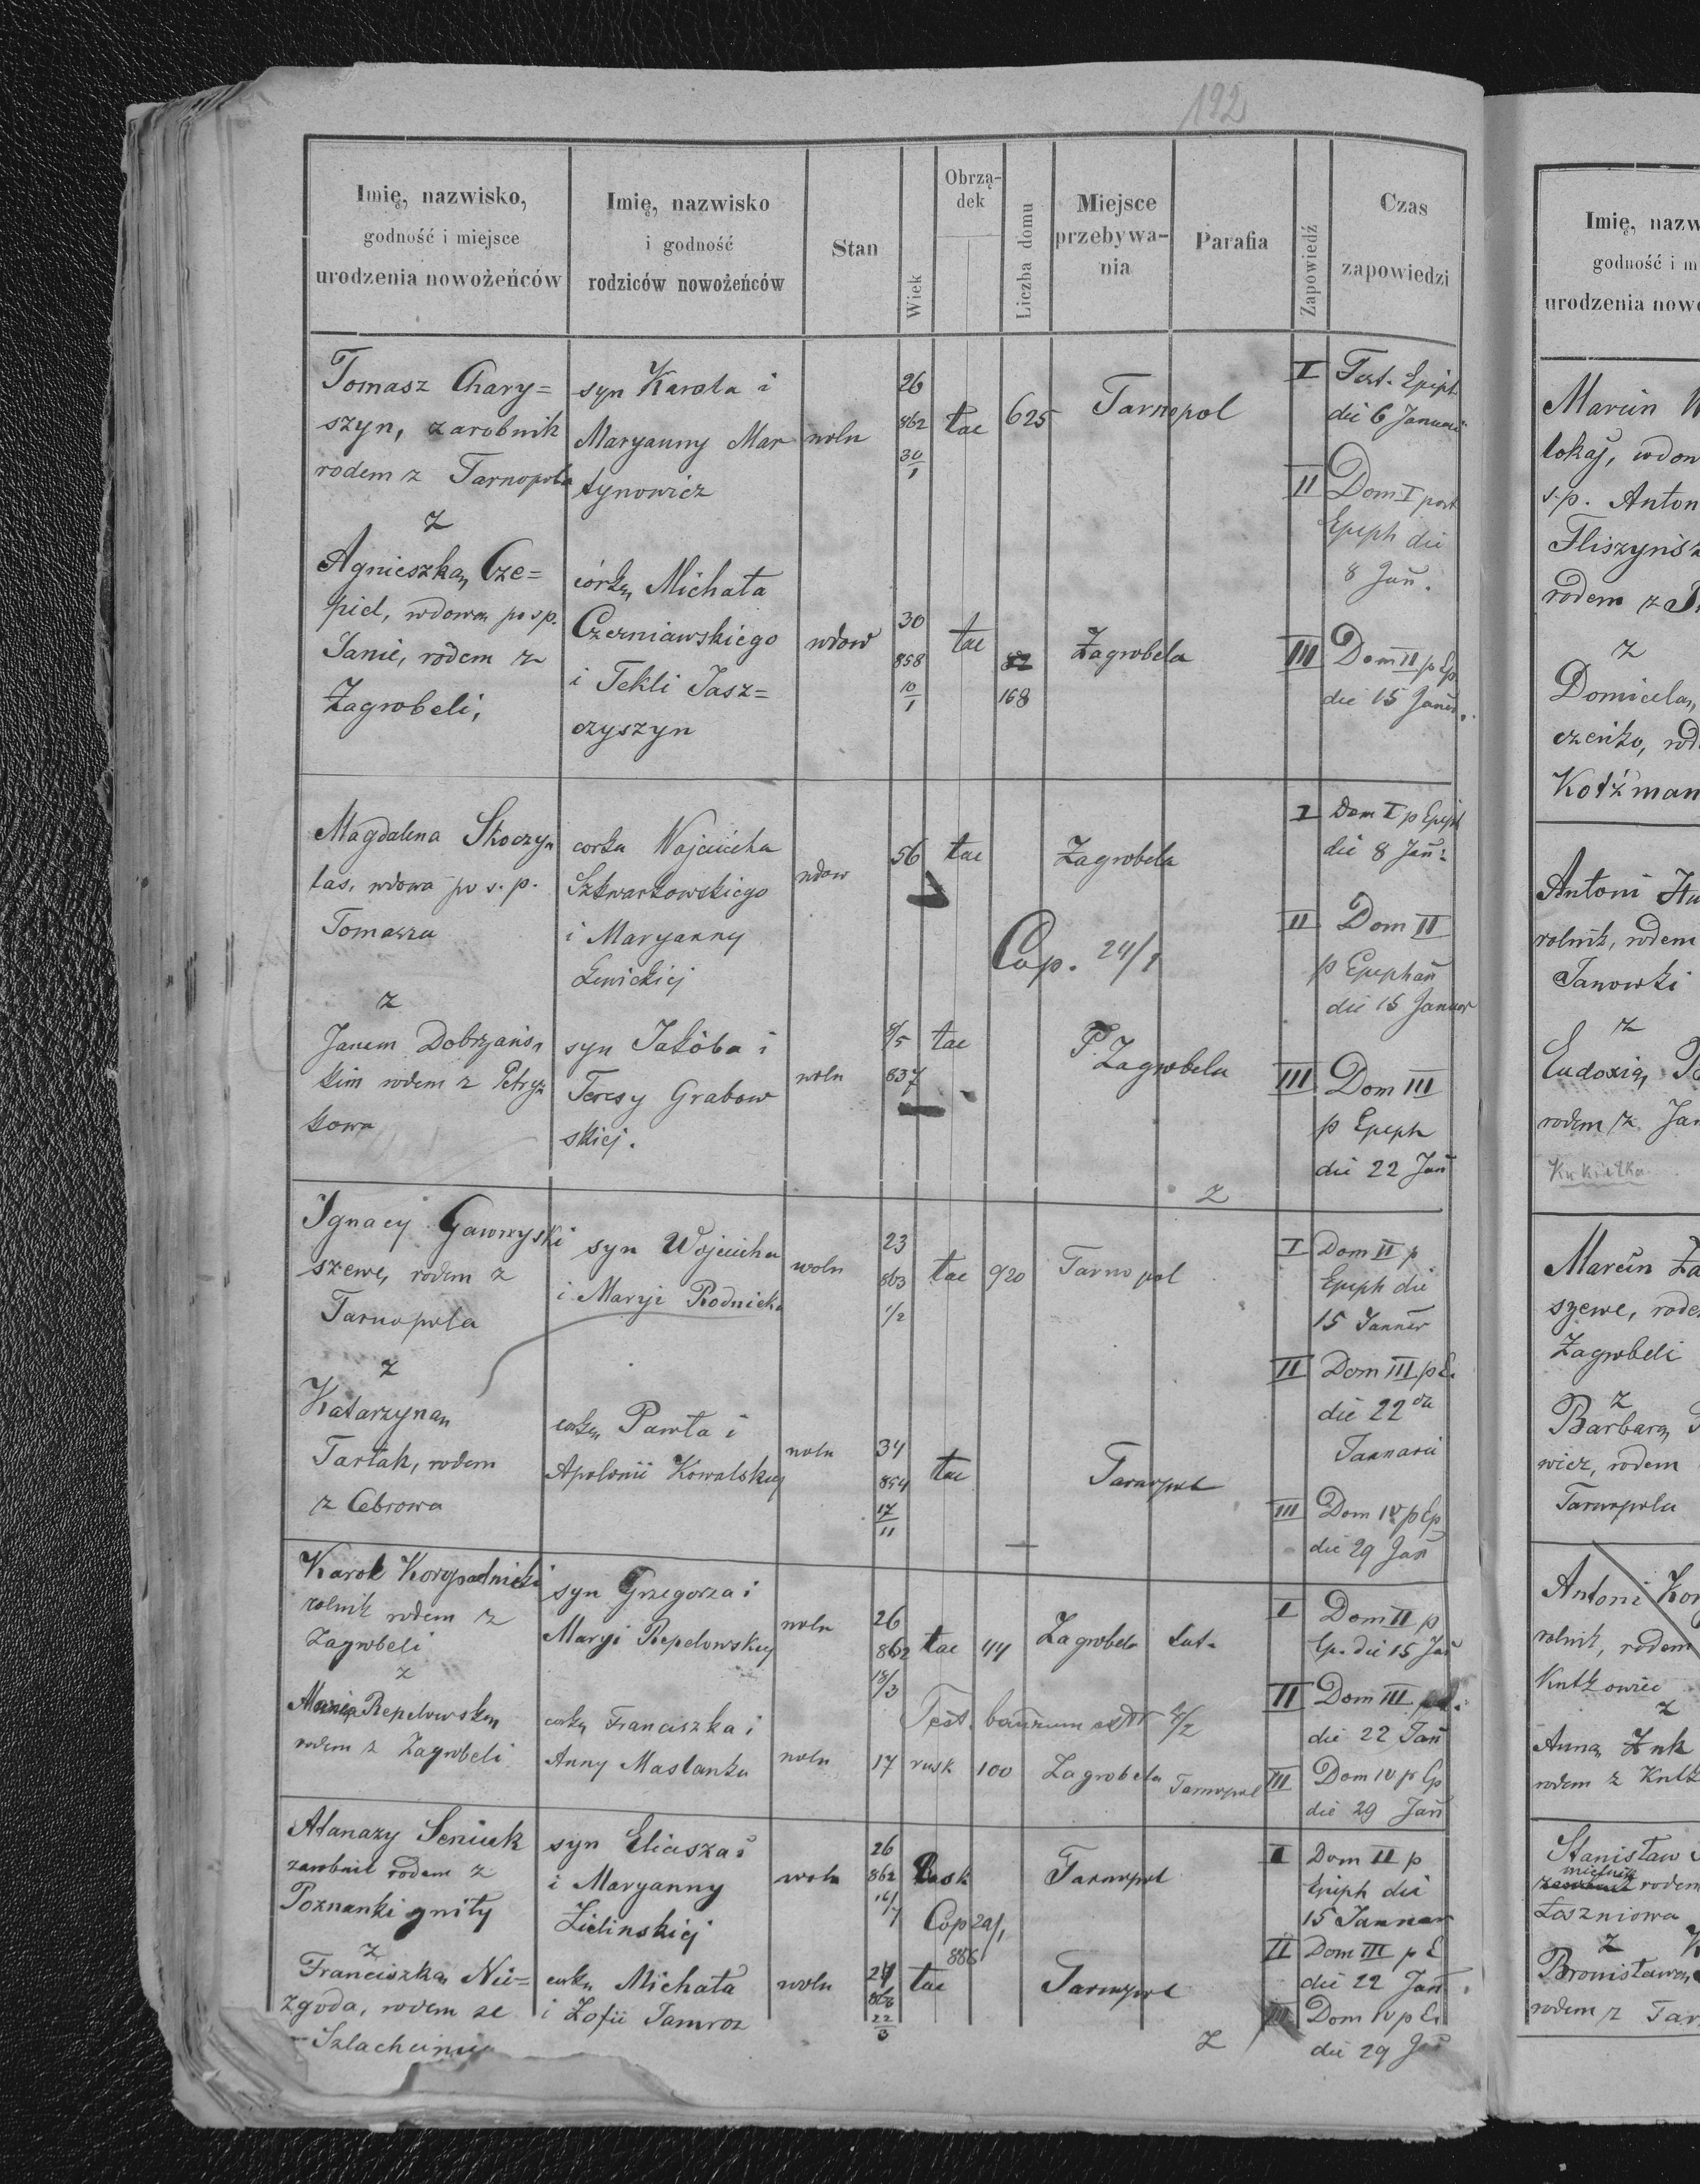 192
Imię, nazwisko,
godność i miejsce
urodzenia nowożeńców
Imię, nazwisko
i godność
rodziców nowożeńców
Stan
Wiek
Obrzą-
dek
Liczba domu
Miejsce
przebywa-
nia
Parafia
Zapowiedź
Czas
zapowiedzi
Tomasz Chary=
szyn, zarobnik
rodem z Tarnopola
z
Agnieszką Cze=
piel, wdową po sp.
Janie, rodem z
Zagrobeli,
syn Karola i
Maryanny Mar
tynowicz
córką Michała
Czerniawskiego
i Tekli Jasz=
czyszyn
woln
wdow
26
862
30/1
30
858
10/1
łac
łac
625
168
Tarnopol
Zagrobela
I Fest. Epiph
die 6 Januarii
II Dom I post
Epiph die
8 Jan.
III Dom II p Ep
die 15 Januar.
Magdalena Skoczy
las, wdowa po s. p.
Tomaszu
z
Janem Dobrzańs
kim rodem z Petryk
kowa
corka Wojciecha
Szkwarkowskiego
i Maryanny
Lewickiej
syn Jakóba i
Teresy Grabow
skiej.
wdow
woln
56
8/5
837
łac
łac
Zagrobela
Cop. 24/1
P. Zagrobela
I Dom I p Epiph
die 8 Jan:
II Dom II
p Ephiphan
die 15 Januar
III Dom III
p Epiph
die 22 Jan
z
Ignacy Gawryski
szewc, rodem z
Tarnopola
z
Katarzyną
Tartak, rodem
z Cebrowa
syn Wojciecha
i Maryi Rodnicka
corką Pawła i
Apolonii Kowalskiej
woln
woln
23
863
1/2
34
854
17/11
łac
łac
920
Tarnopol
Tarnopol
I Dom II p
Epiph die
15 Januar
II Dom III p E.
die 22da
Januarii
III Dom IV p Ep
die 29 Jan
Karol Koropadnicki
rolnik rodem z
Zagrobeli
z
Maria Repelowską
rodem z Zagrobeli
syn Grzegorza i
Maryi Repelowskiej
corką Franciszka i
Anny Maslanka
woln
woln
26
862
18/3
17
łac
rusk
44
100
Zagrobela
Zagrobela
Lat.
Tarnopol
Test. bannum 4/2
I Dom II p
Ep. die 15 Jan
II Dom III
die 22 Jan
III Dom IV p Ep
die 29 Jan
Atanazy Seniuk
zarobnik rodem z
Poznanki gniłty
z
Franciszką Nie=
zgoda, rodem ze
Szlachciniec
syn Eliasza i
i Maryanny
Zielinskiej
corką Michała
i Zofii Jamroz
woln
woln
26
862
16/7
22/3
Rusk
łac
Cop 29/1
886
Tarnopol
Tarnopol
I Dom II p
Epiph die
15 Januar
II Dom III p E
die 22 Jan
III Dom IV p E.
die 29 Jan
z
Imię, nazw
godność i m
urodzenia nowo
Marcin W
lokaj, wdow
s.p. Anton
Fliszyńsk
rodem z
z
Domicelą,
czenko, rod
Kotźman
Antoni Hu
rolnik, rodem
Janowki
z
Eudoxią,
rodem z Jan
Kukiełka
Marcin Za
szewc, rode
Zagrobeli
z
Barbarą
wicz, rodem
Tarnopola
Antoni Kor
rolnik, rodem
Kutkowiec
z
Anną Żuk
rodem z Kutk
Stanisław
mielnik
rodem
Łoszniowa
z
Bronisławą
rodem z Tar